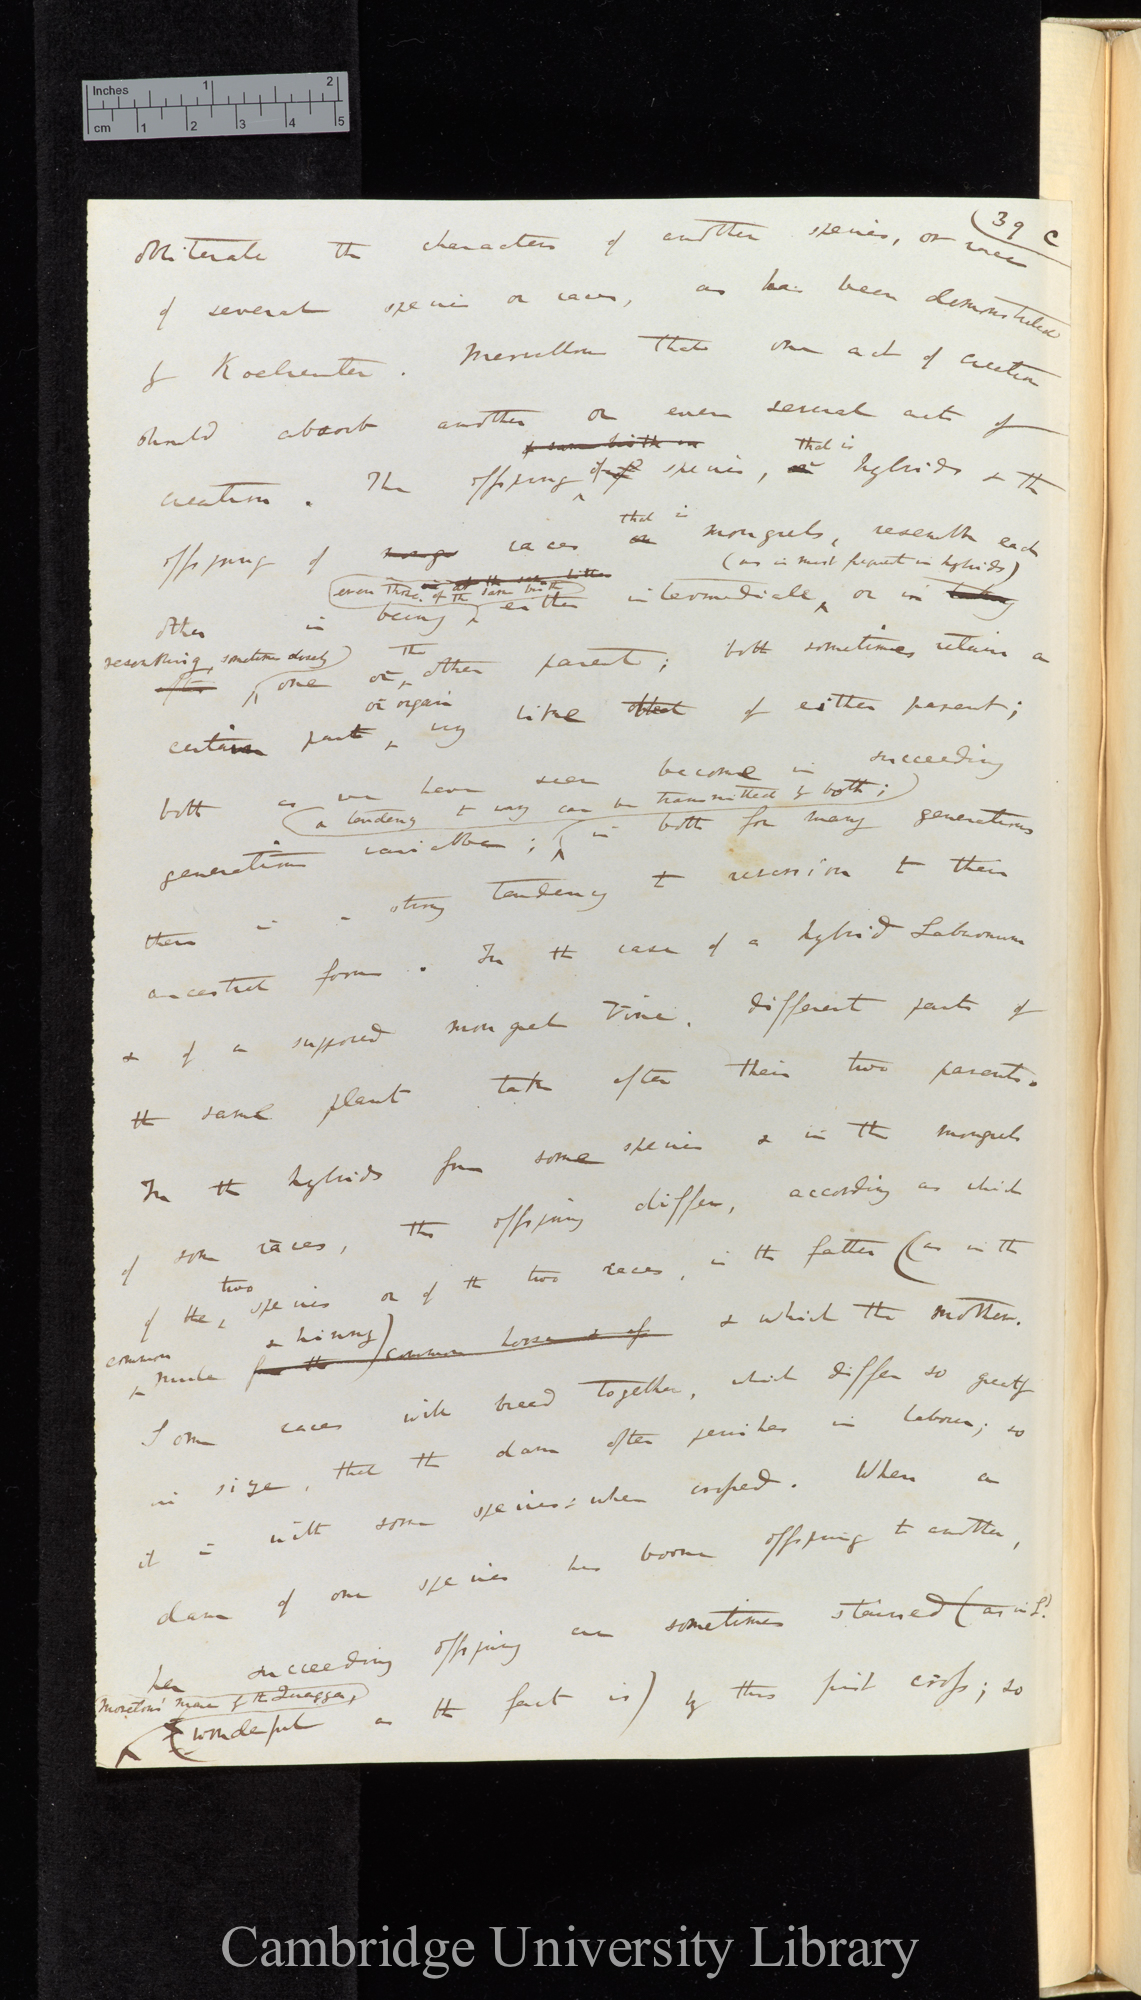 Inches 1 2
cm 1 2 3 4 5
39 c
obliterate the characters of another species, or race
of several species or races, as has been demonstrated
by Koelreuter. Marvellous that one act of creation
should absorb another or even several acts of
that is
creation. The offspring of species, hybrids & the
that is
offspring of races mongrels, resemble each
(as is most frequent in hybrids)
even those of the same birth
other in being either intermediate, or in
resembling, sometimes closely the
one or other parent; both sometimes retain a
or organ
certain part very like of either parent;
both as we have seen become in succeeding
a tendency to vary can be transmitted by both;
generations variable; in both for many generations
there is a strong tendency to reversion to their
ancestral form. In the case of a hybrid Laburnum
& of a supposed mongrel Vine, different parts of
the same plant take after their two parents.
In the hybrids from some species & in the mongrels
of some races, the offspring differ, according as which
two
of the species or of the two races, is the father (as in the
common & hinny)
mule common horse & ass & which the mother.
Some races will breed together, which differ so greatly
in size, that the dam often perishes in labour; so
it is with some species when crossed. When a
dam of one species has borne offspring to another,
her succeeding offspring are sometimes stained (as in Ld.
Moreton's mare by the Quagga,
wonderful as the fact is) by this first cross; so
Cambridge University Library